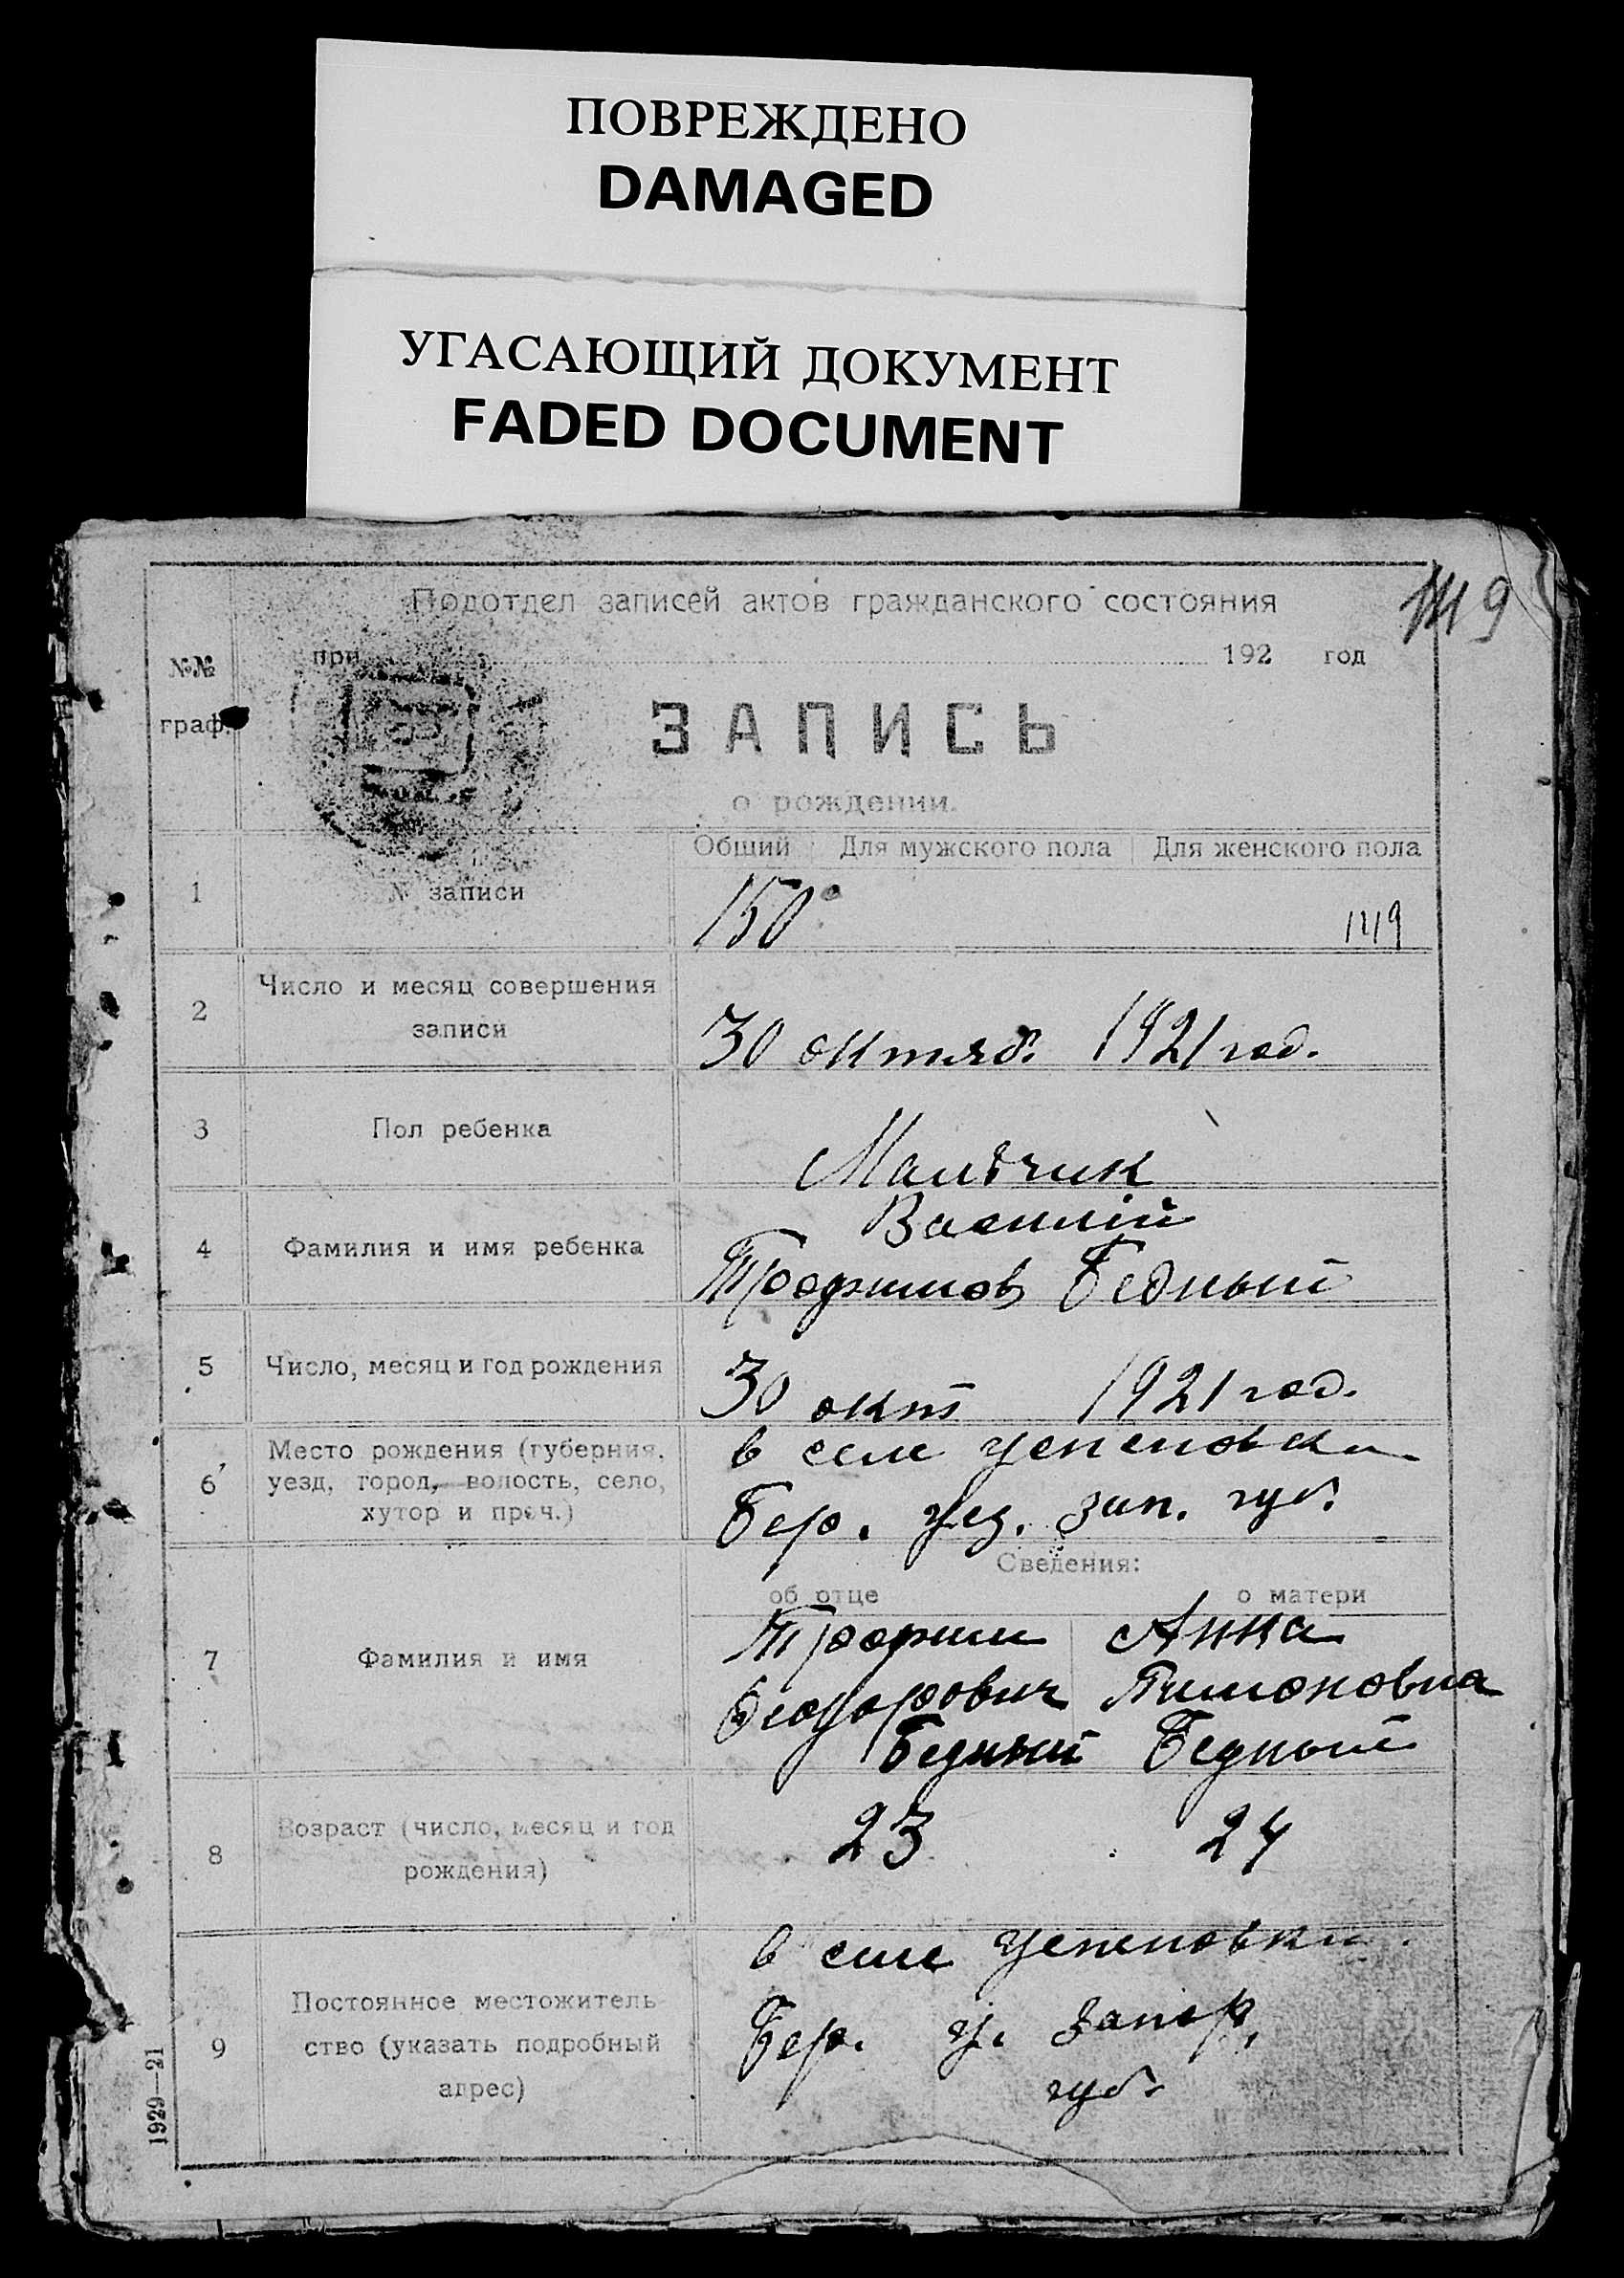 ПОВРЕЖДЕНО
DAMAGED
УГАСАЮЩИЙ ДОКУМЕНТ
FADED DOCUMENT
Подотдел записей актов гражданского состояния
при 192 год
№№
граф.
ЗАПИСЬ
о рождении.
Общий Для мужского пола Для женского пола
1 № записи 150
2 Число и месяц совершения
записи
30 октяб. 1921 год.
3 Пол ребенка
Мальчик
4 Фамилия и имя ребенка
Василій
Трофимов Бедный
5 Число, месяц и год рождения
30 окт 1921 год.
6 Место рождения (губерния,
уезд, город, волость, село,
хутор и проч.)
в селе Успеновки
Бер. уез. зап. губ.
Сведения:
об отце о матери
7 Фамилия и имя
Трофим Анна
Феодорович Тимоновна
Бедный Бедный
8 Возраст (число, месяц и год
рождения)
23 24
9 Постоянное местожитель
ство (указать подробный
адрес)
в селе Успеновки.
Бер. у. Запор.
губ.
1929—21